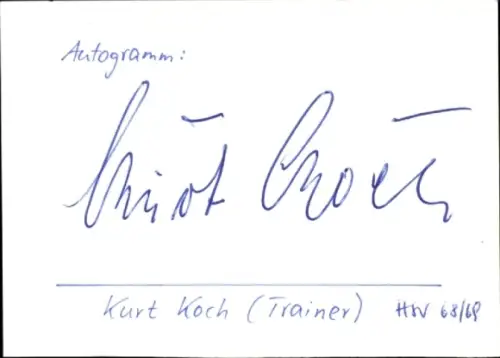 Autogramm:
Kurt Koch
Kurt Koch (Trainer) HSV 68/69